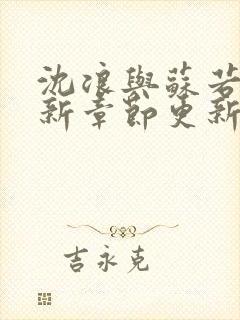 沈浪與蘇若
新章節更新
吉永克